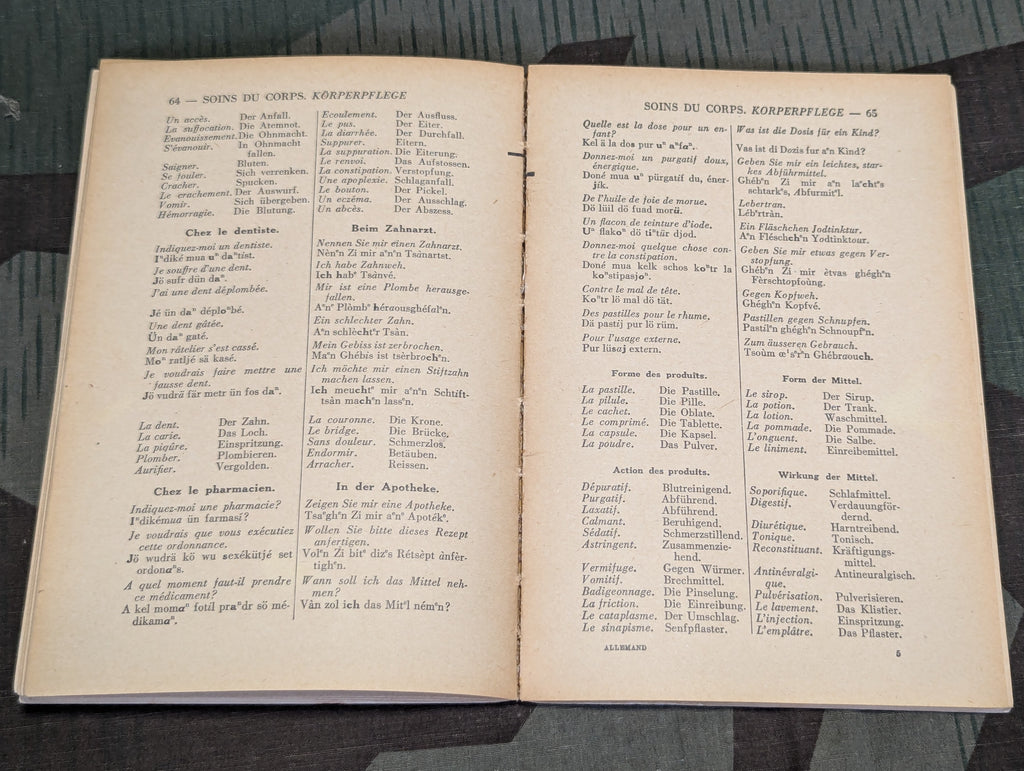 64 — SOINS DU CORPS. KÖRPERPFLEGE
Un accès. Der Anfall.
La suffocation. Die Atemnot.
Evanouissement. Die Ohnmacht.
S'évanouir. In Ohnmacht
fallen.
Saigner. Bluten.
Se fouler. Sich verrenken.
Cracher. Spucken.
Le crachement. Der Auswurf.
Vomir. Sich übergeben.
Hémorragie. Die Blutung.
Ecoulement. Der Ausfluss.
Le pus. Der Eiter.
La diarrhée. Der Durchfall.
Suppurer. Eitern.
La suppuration. Die Eiterung.
Le renvoi. Das Aufstossen.
La constipation. Verstopfung.
Une apoplexie. Schlaganfall.
Le bouton. Der Pickel.
Un eczéma. Der Ausschlag.
Un abcès. Der Abszess.
Chez le dentiste.
Indiquez-moi un dentiste.
Iⁿdiké mua uⁿ daⁿtist.
Je souffre d'une dent.
Jö sufr dün daⁿ.
J'ai une dent déplombée.
Jé ün daⁿ déploⁿbé.
Une dent gâtée.
Ün daⁿ gaté.
Mon râtelier s'est cassé.
Moⁿ ratljé sä kasé.
Je voudrais faire mettre une
fausse dent.
Jö vudrä fär metr ün fos daⁿ.
Beim Zahnarzt.
Nennen Sie mir einen Zahnarzt.
Nèn'n Zi mir a'n'n Tsânartst.
Ich habe Zahnweh.
Ich hab' Tsânvé.
Mir ist eine Plombe herausge-
fallen.
A'n' Plòmb' héraousghéfal'n.
Ein schlechter Zahn.
A'n schlècht'r Tsân.
Mein Gebiss ist zerbrochen.
Ma'n Ghébis ist tsèrbroch'n.
Ich möchte mir einen Stiftzahn
machen lassen.
Ich meucht' mir a'n'n Schtift-
tsàn mach'n lass'n.
La dent. Der Zahn.
La carie. Das Loch.
La piqûre. Einspritzung.
Plomber. Plombieren.
Aurifier. Vergolden.
La couronne. Die Krone.
Le bridge. Die Brücke,
Sans douleur. Schmerzlos.
Endormir. Betäuben.
Arracher. Reissen.
Chez le pharmacien.
Indiquez-moi une pharmacie?
Iⁿdikémua ün farmasi?
Je voudrais que vous exécutiez
cette ordonnance.
Jö wudrä kö wu sexékütjé set
ordonaⁿs.
A quel moment faut-il prendre
ce médicament?
A kel momaⁿ fotil praⁿdr sö mé-
dikamaⁿ.
In der Apotheke.
Zeigen Sie mir eine Apotheke.
Tsa'gh'n Zi mir a'n' Apoték'.
Wollen Sie bitte dieses Rezept
anfertigen.
Vol'n Zi bit' diz's Rétsèpt ànfèr-
tigh'n.
Wann soll ich das Mittel neh-
men?
Vàn zol ich das Mit'l ném'n?
SOINS DU CORPS. KORPERPFLEGE — 65
Quelle est la dose pour un en-
fant?
Kel ä la dos pur uⁿ aⁿfaⁿ.
Donnez-moi un purgatif doux,
énergique.
Doné mua uⁿ pürgatif du, éner-
jik.
De l'huile de foie de morue.
Dö lüil dö fuad morü.
Un flacon de teinture d'iode.
Uⁿ flakoⁿ dö tiⁿtür djod.
Donnez-moi quelque chose con-
tre la constipation.
Doné mua kelk schos koⁿtr la
koⁿstipasjoⁿ.
Contre le mal de tête.
Koⁿtr lö mal dö tät.
Des pastilles pour le rhume.
Dä pastij pur lö rüm.
Pour l'usage externe.
Pur lüsaj extern.
Was ist die Dosis für ein Kind?
Vas ist di Dozis fur a'n Kind?
Geben Sie mir ein leichtes, star-
kes Abführmittel.
Ghéb'n Zi mir a'n la'cht's
schtark's, Abfurmit'l.
Lebertran.
Léb'rtràn.
Ein Fläschchen Jodtinktur.
A'n Fléschch'n Yodtinktour.
Geben Sie mir etwas gegen Ver-
stopfung.
Ghéb'n Zi mir ètvas ghégh'n
Fèrschtopfoûng.
Gegen Kopfweh.
Ghégh'n Kopfvé.
Pastillen gegen Schnupfen.
Pastil'n ghégh'n Schnoupf'n.
Zum äusseren Gebrauch.
Tsoùm œ's'r'n Ghébraouch.
Forme des produits.
La pastille. Die Pastille.
La pilule. Die Pille.
Le cachet. Die Oblate.
Le comprimé. Die Tablette.
La capsule. Die Kapsel.
La poudre. Das Pulver.
Form der Mittel.
Le sirop. Der Sirup.
La potion. Der Trank.
La lotion. Waschmittel.
La pommade. Die Pommade.
L'onguent. Die Salbe.
Le liniment. Einreibemittel.
Action des produits.
Dépuratif. Blutreinigend.
Purgatif. Abführend.
Laxatif. Abführend.
Calmant. Beruhigend.
Sédatif. Schmerzstillend.
Astringent. Zusammenzie-
hend.
Vermifuge. Gegen Würmer.
Vomitif. Brechmittel.
Badigeonnage. Die Pinselung.
La friction. Die Einreibung.
Le cataplasme. Der Umschlag.
Le sinapisme. Senfpflaster.
Wirkung der Mittel.
Soporifique. Schlafmittel.
Digestif. Verdauungför-
dernd.
Diurétique. Harntreibend.
Tonique. Tonisch.
Reconstituant. Kräftigungs-
mittel.
Antinévralgi- Antineuralgisch.
que.
Pulvérisation. Pulverisieren.
Le lavement. Das Klistier.
L'injection. Einspritzung.
L'emplâtre. Das Pflaster.
ALLEMAND 5